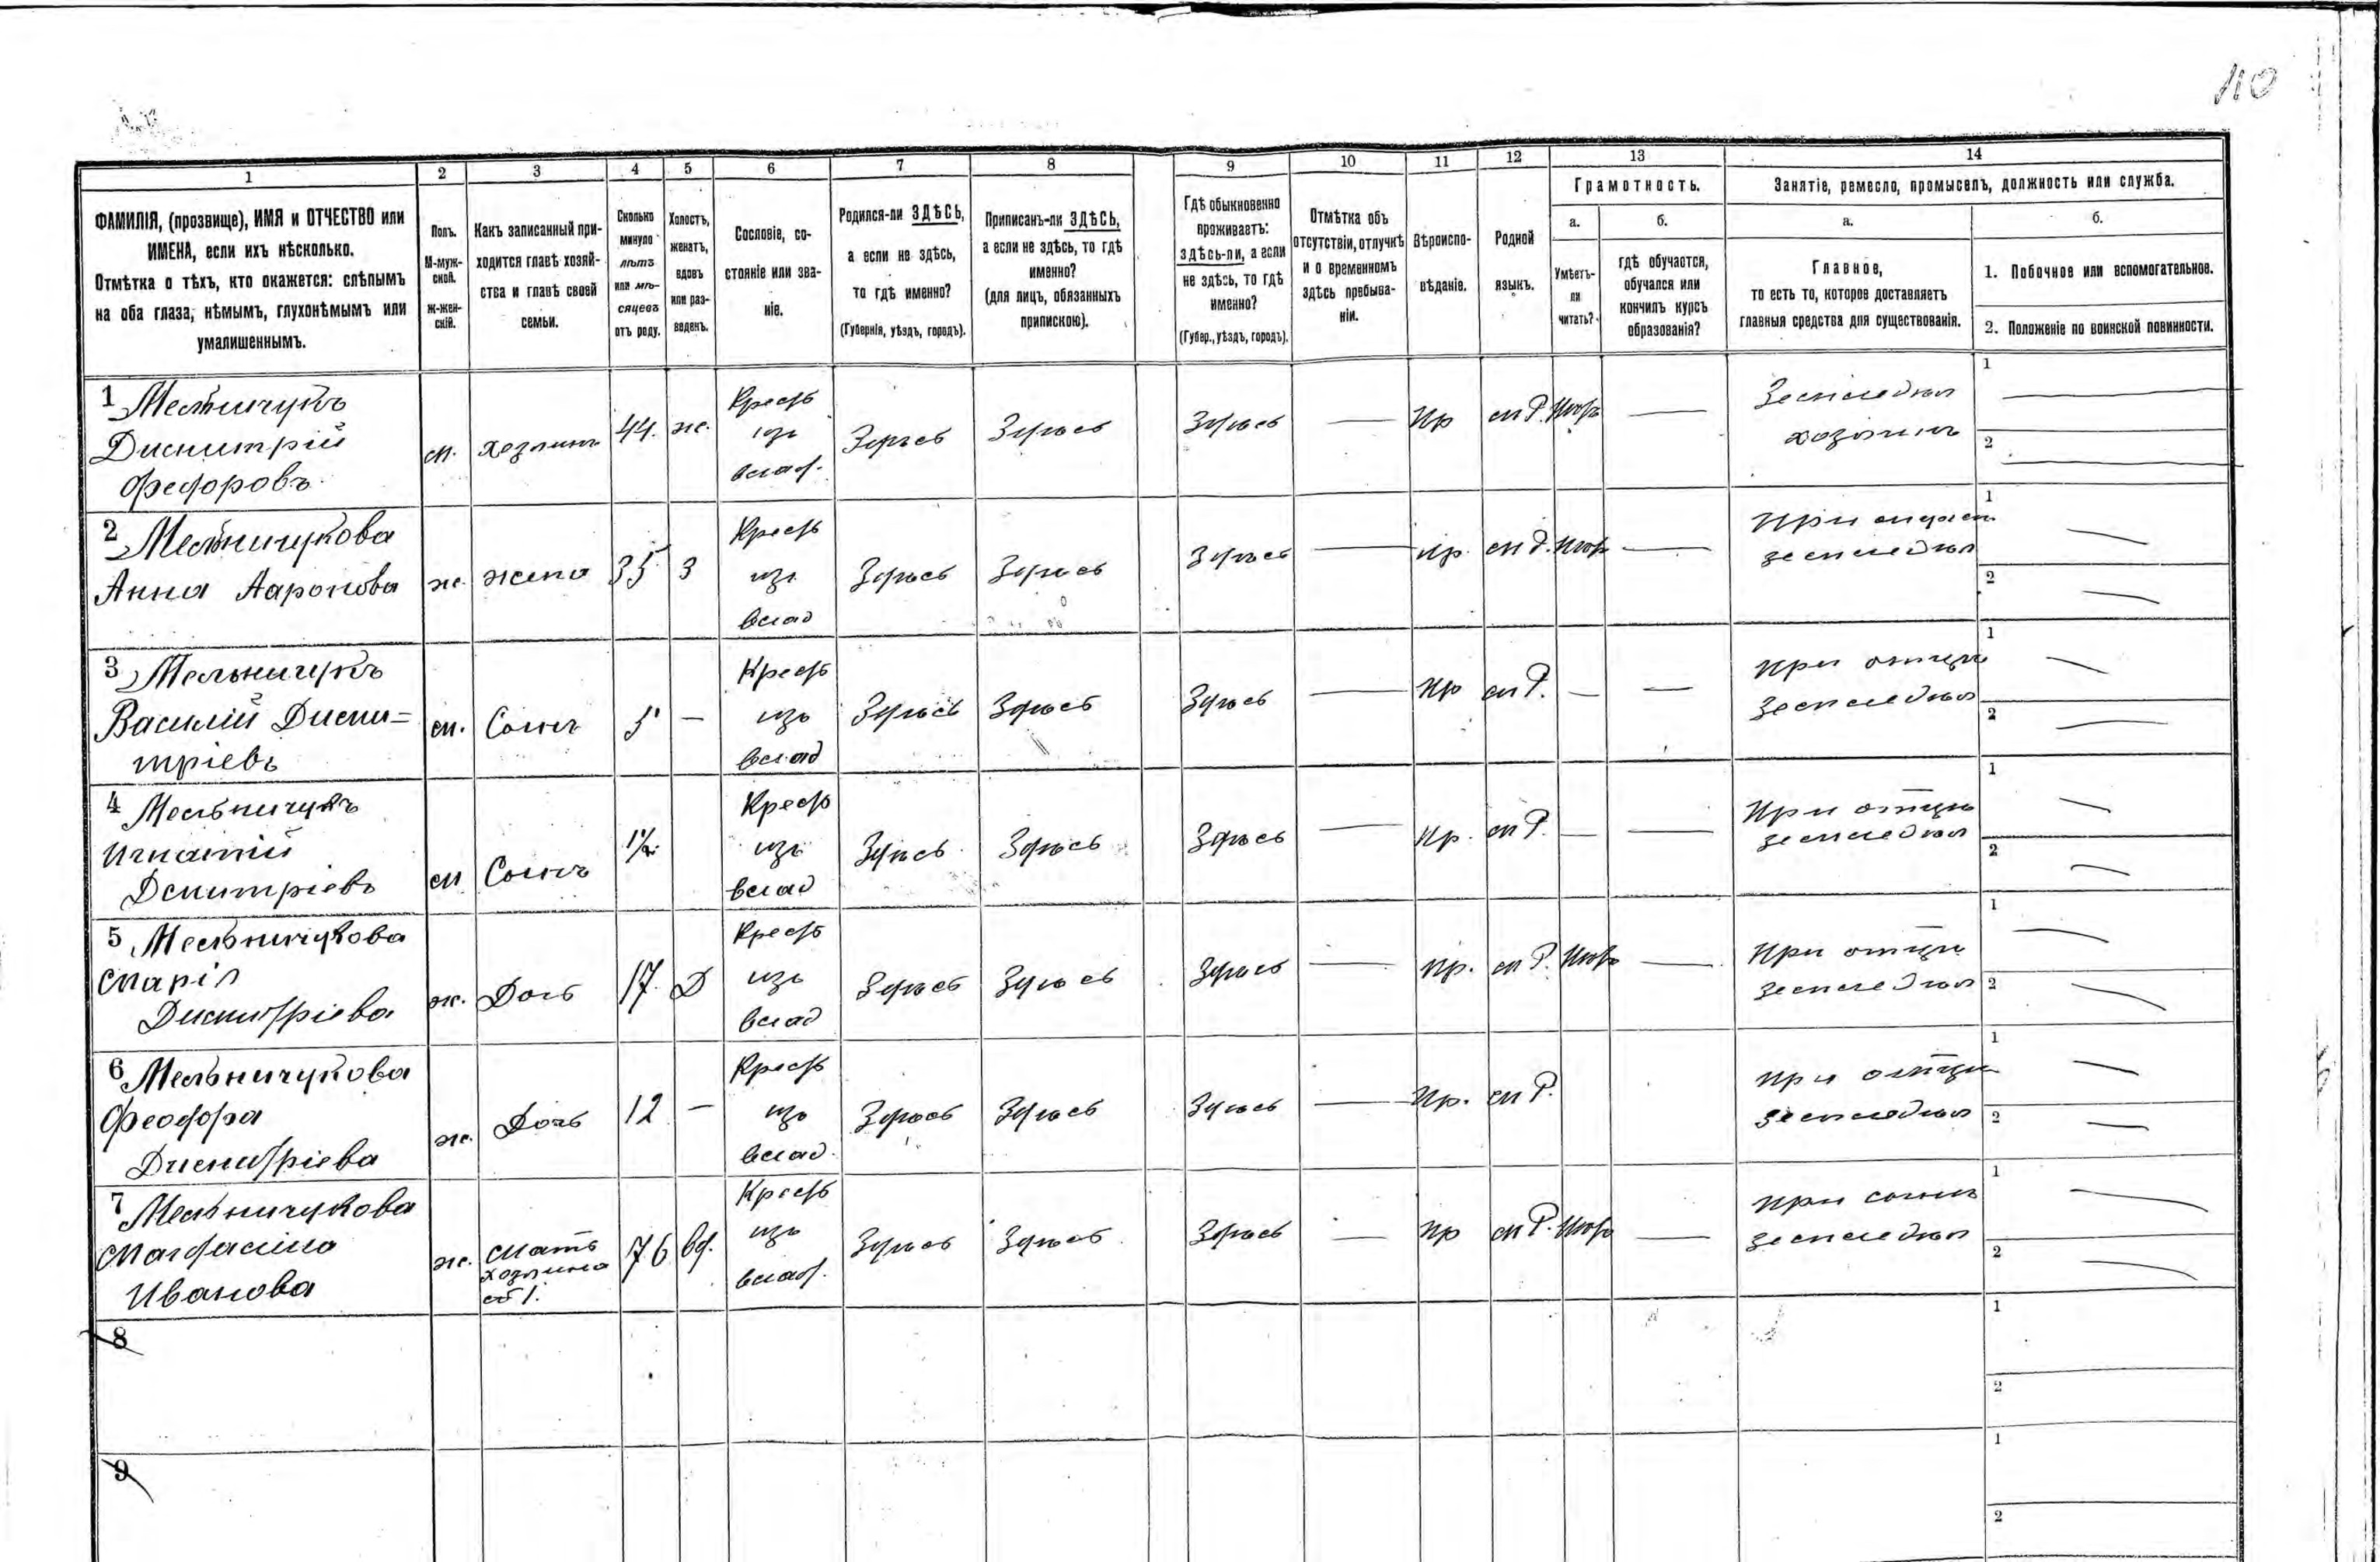 110
1 2 3 4 5 6 7 8 9 10 11 12 13 14
ФАМИЛІЯ, (прозвище), ИМЯ и ОТЧЕСТВО или
ИМЕНА, если ихъ нѣсколько.
Отмѣтка о тѣхъ, кто окажется: слѣпымъ
на оба глаза, нѣмымъ, глухонѣмымъ или
умалишеннымъ.
Полъ.
М-муж-
ской.
Ж-жен-
скій.
Какъ записанный при-
ходится главѣ хозяй-
ства и главѣ своей
семьи.
Сколько
минуло
лѣтъ
или мѣ-
сяцевъ
отъ роду.
Холостъ,
женатъ,
вдовъ
или раз-
веденъ.
Сословіе, со-
стояніе или зва-
ніе.
Родился-ли ЗДѢСЬ,
а если не здѣсь,
то гдѣ именно?
(Губернія, уѣздъ, городъ).
Приписанъ-ли ЗДѢСЬ,
а если не здѣсь, то гдѣ
именно?
(для лицъ, обязанныхъ
припискою).
Гдѣ обыкновенно
проживаетъ:
здѣсь-ли, а если
не здѣсь, то гдѣ
именно?
(Губер., уѣздъ, городъ).
Отмѣтка объ
отсутствіи, отлучкѣ
и о временномъ
здѣсь пребыва-
ніи.
Вѣроиспо-
вѣданіе.
Родной
языкъ.
Грамотность.
а.
Умѣетъ-
ли
читать?
б.
гдѣ обучается,
обучался или
кончилъ курсъ
образованія?
Занятіе, ремесло, промыселъ, должность или служба.
а.
Главное,
то есть то, которое доставляетъ
главныя средства для существованія.
б.
1. Побочное или вспомогательное.
2. Положеніе по воинской повинности.
1 Мельничукъ
Димитрій
Федоровъ
м. хозяинъ 44. ж.
Крест
изъ
влад.
Здѣсь Здѣсь Здѣсь — Пр м Р. —
Земледѣл
хозяинъ
1
2
2 Мельничукова
Анна Ааронова
ж. жена 35 З
Крест
изъ
влад
Здѣсь Здѣсь Здѣсь — пр. м Р. —
При
земледѣл
1
2
3 Мельничукъ
Василій Дими=
тріевъ
м. Сынъ 5 —
Крест
изъ
влад
Здѣсь Здѣсь Здѣсь — Пр м Р. — —
при отцѣ
земледѣл
1
2
4 Мельничукъ
Игнатій
Дмитріевъ
м Сынъ 1½
Крест
изъ
влад
Здѣсь Здѣсь Здѣсь — Пр. м Р. — —
При отцѣ
земледѣл
1
2
5 Мельничукова
Марія
Димитріева
ж. Дочь 17. Д
Крест
изъ
влад
Здѣсь Здѣсь Здѣсь — Пр. м Р. —
При отцѣ
земледѣл
1
2
6 Мельничукова
Феодора
Димитріева
ж. Дочь 12 —
Крест
изъ
влад.
Здѣсь Здѣсь Здѣсь — Пр. м Р.
при отцѣ
земледѣл
1
2
7 Мельничукова
Иванова
ж.
мать
хозяина
об 1.
76 вд.
Крест
изъ
влад.
Здѣсь Здѣсь Здѣсь — Пр м Р. —
при сынѣ
земледѣл
1
2
8
1
2
9
1
2